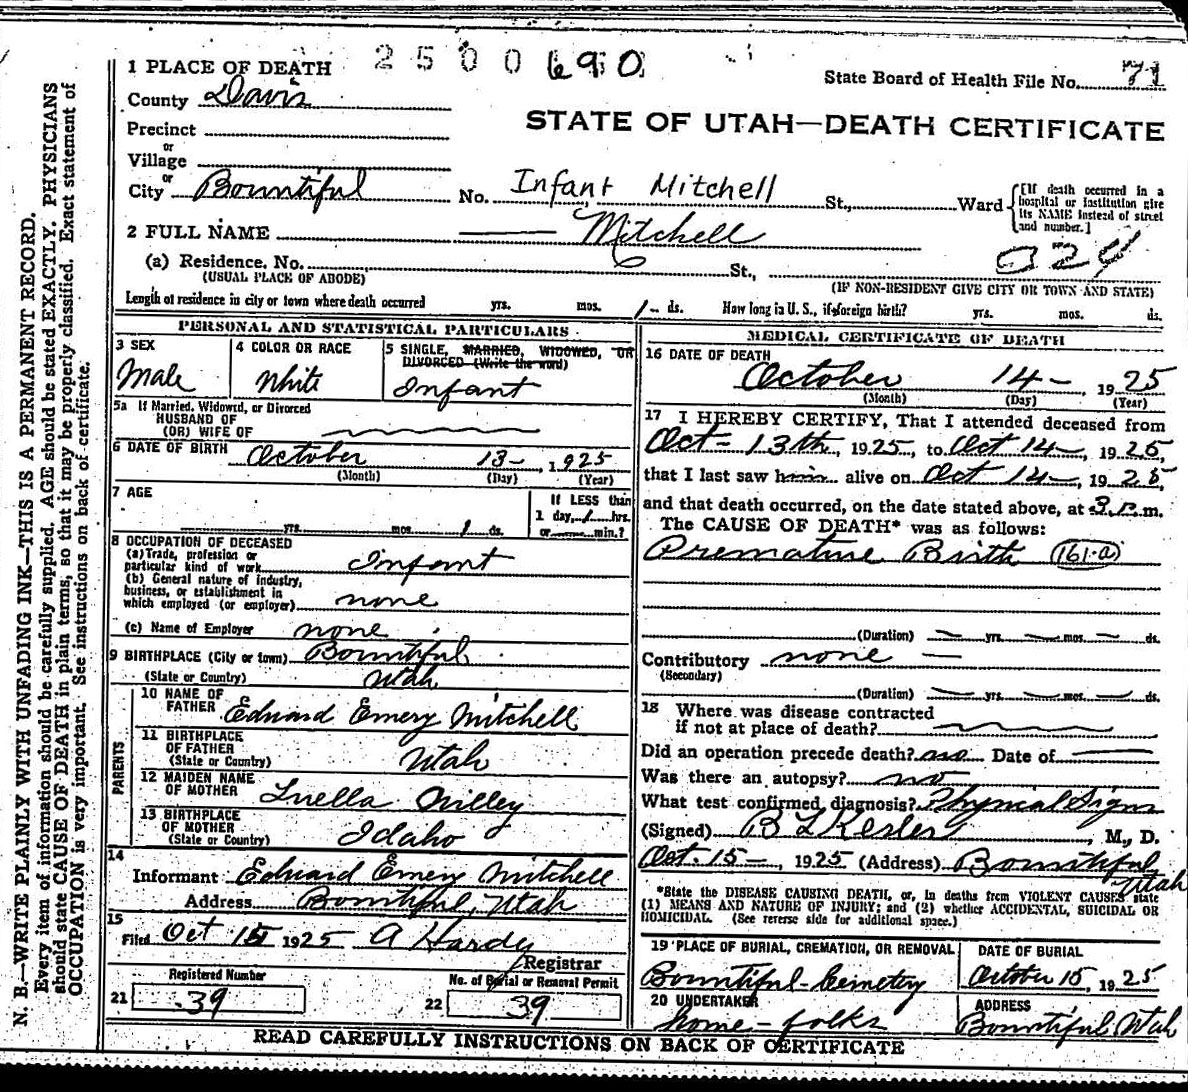 2500690
1 PLACE OF DEATH
State Board of Health File No. 71
County Davis
STATE OF UTAH—DEATH CERTIFICATE
Precinct
or
Village
or
City Bountiful No. Infant Mitchell St., Ward
[If death occurred in a hospital or institution give its NAME instead of street and number.]
2 FULL NAME Mitchell
(a) Residence, No. St.,
(USUAL PLACE OF ABODE)
(IF NON-RESIDENT GIVE CITY OR TOWN AND STATE)
Length of residence in city or town where death occurred yrs. mos. 1 ds. How long in U. S., if of foreign birth? yrs. mos. ds.
PERSONAL AND STATISTICAL PARTICULARS
3 SEX
Male
4 COLOR OR RACE
White
5 SINGLE, MARRIED, WIDOWED, OR
DIVORCED (Write the word)
Infant
5a If Married, Widowed, or Divorced
HUSBAND OF
(OR) WIFE OF
6 DATE OF BIRTH October 13-, 1925
(Month) (Day) (Year)
7 AGE
yrs. mos. 1 ds.
If LESS than
1 day, 1 hrs.
or min.?
8 OCCUPATION OF DECEASED
(a) Trade, profession or
particular kind of work Infant
(b) General nature of industry,
business, or establishment in
which employed (or employer) none
(c) Name of Employer none
9 BIRTHPLACE (City or town) Bountiful
(State or Country) Utah
PARENTS
10 NAME OF
FATHER Edward Emery Mitchell
11 BIRTHPLACE
OF FATHER
(State or Country) Utah
12 MAIDEN NAME
OF MOTHER Luella Willey
13 BIRTHPLACE
OF MOTHER
(State or Country) Idaho
14
Informant Edward Emery Mitchell
Address Bountiful, Utah
15
Filed Oct 15 1925 A Hardy
Registrar
Registered Number
21 39
No. of Burial or Removal Permit
22 39
MEDICAL CERTIFICATE OF DEATH
16 DATE OF DEATH
October 14- 1925
(Month) (Day) (Year)
17 I HEREBY CERTIFY, That I attended deceased from
Oct- 13th, 1925, to Oct 14-, 1925,
that I last saw him alive on Oct 14-, 1925,
and that death occurred, on the date stated above, at 3 P.m.
The CAUSE OF DEATH* was as follows:
Premature Birth 161-a
(Duration) yrs. mos. ds.
Contributory none
(Secondary)
(Duration) yrs. mos. ds.
18 Where was disease contracted
if not at place of death?
Did an operation precede death? no Date of
Was there an autopsy? no
What test confirmed diagnosis? Physical Signs
(Signed) B L Kesler, M., D.
Oct. 15-, 1925 (Address) Bountiful
Utah
*State the DISEASE CAUSING DEATH, or, in deaths from VIOLENT CAUSES state
(1) MEANS AND NATURE OF INJURY; and (2) whether ACCIDENTAL, SUICIDAL OR
HOMICIDAL. (See reverse side for additional space.)
19 PLACE OF BURIAL, CREMATION, OR REMOVAL
Bountiful-Cemetery
DATE OF BURIAL
October 15, 1925
20 UNDERTAKER
home-folks
ADDRESS
Bountiful Utah
READ CAREFULLY INSTRUCTIONS ON BACK OF CERTIFICATE
N. B.—WRITE PLAINLY WITH UNFADING INK—THIS IS A PERMANENT RECORD.
Every item of information should be carefully supplied. AGE should be stated EXACTLY. PHYSICIANS
should state CAUSE OF DEATH in plain terms, so that it may be properly classified. Exact statement of
OCCUPATION is very important. See instructions on back of certificate.